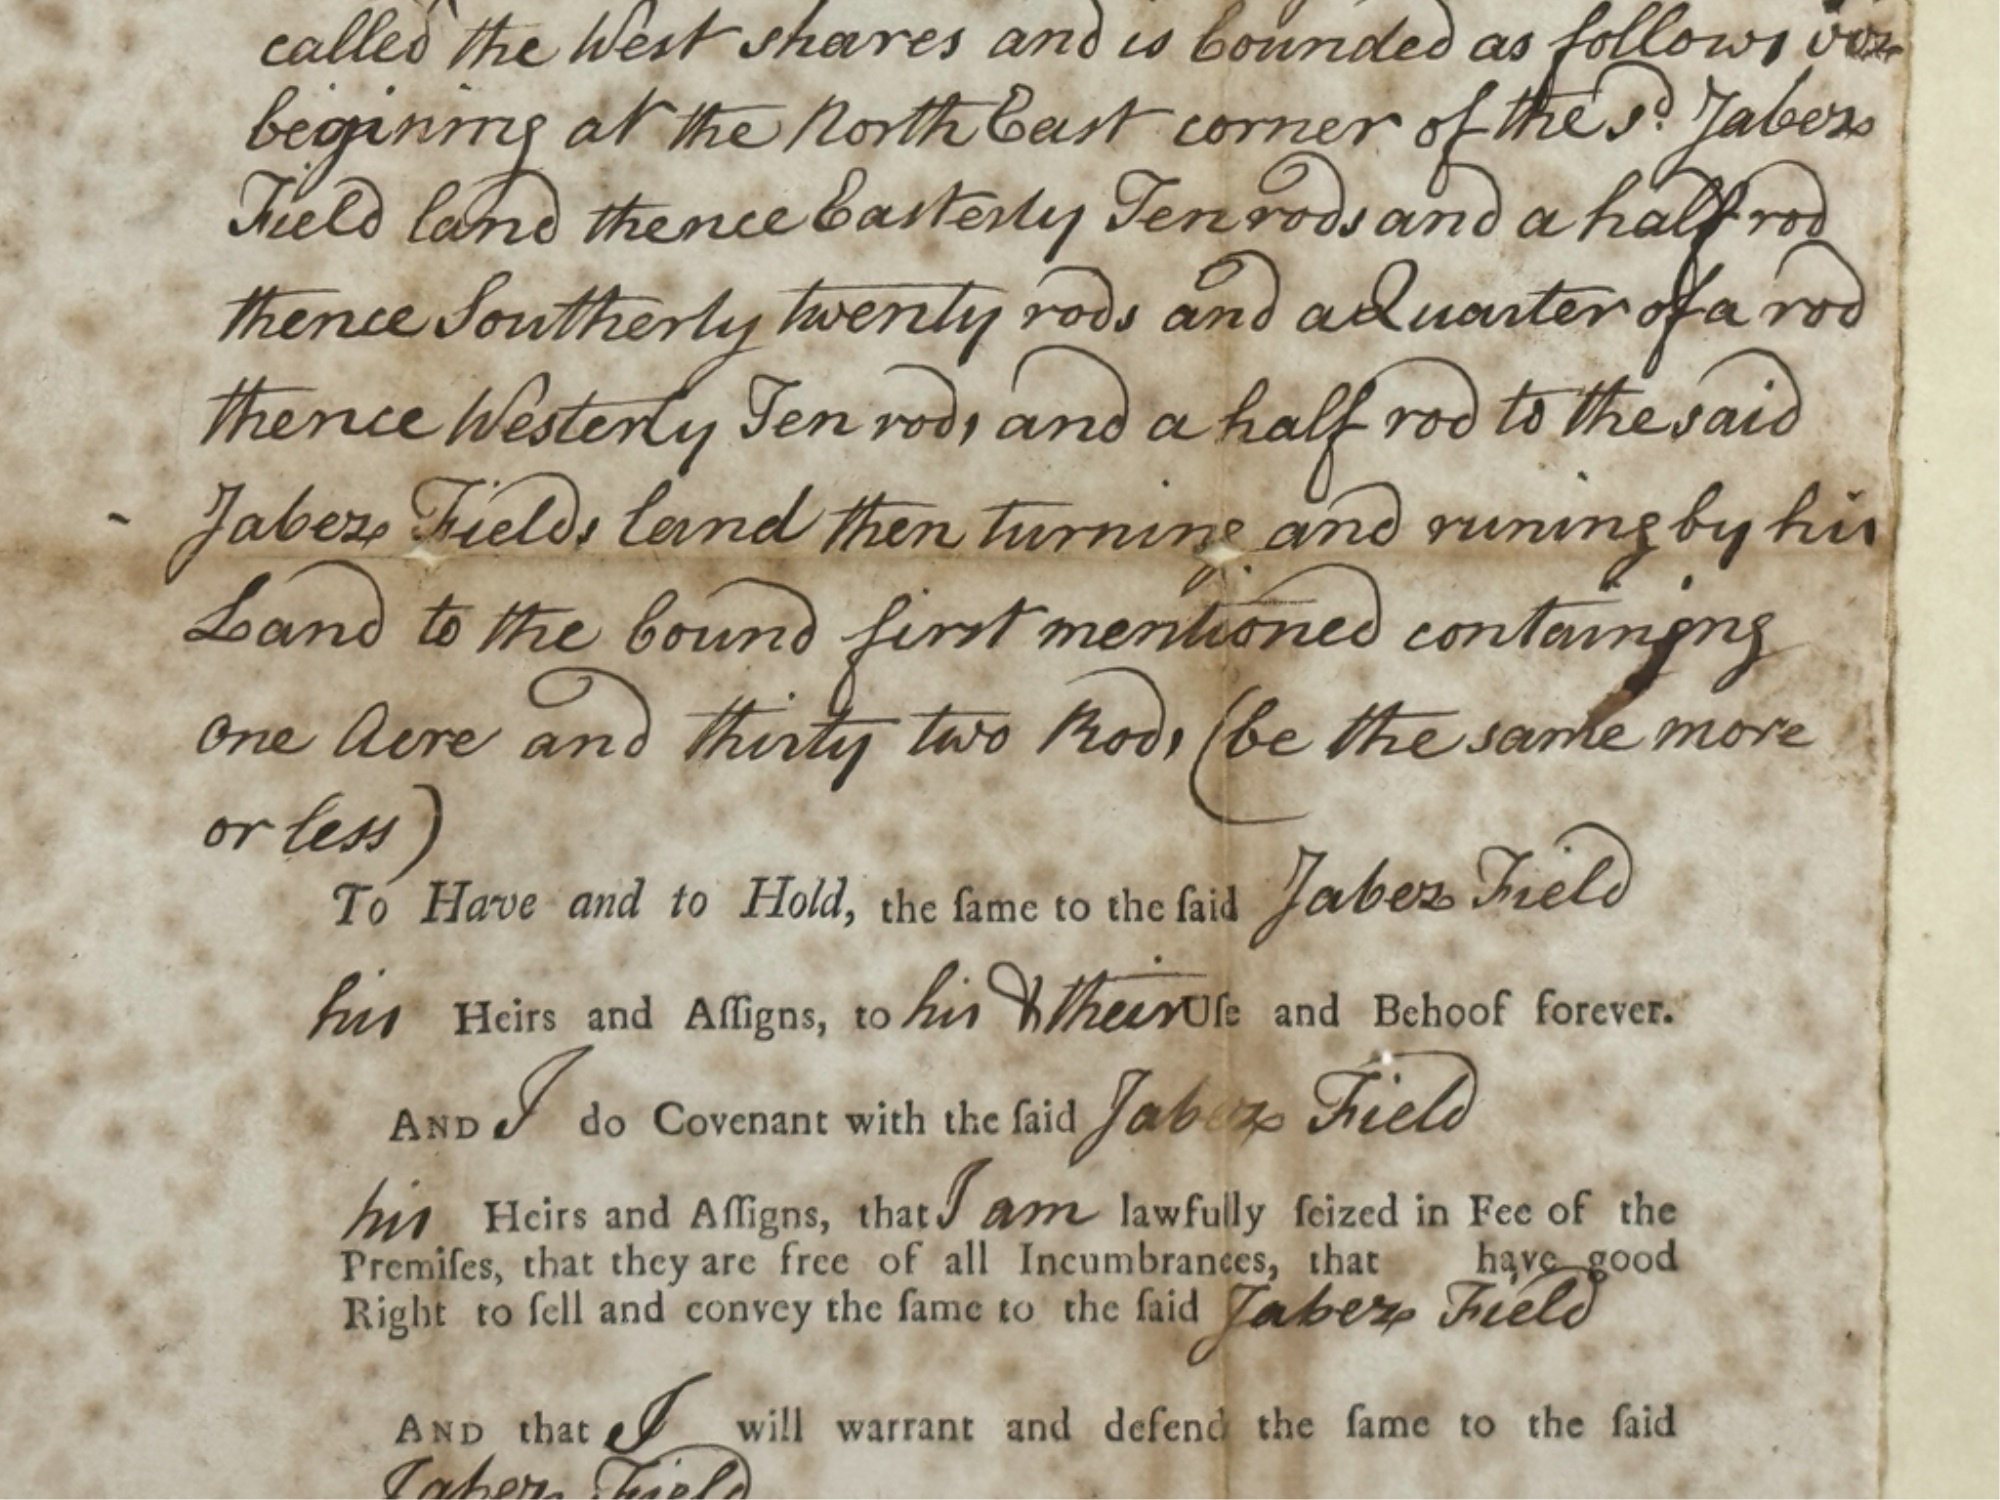 called the West shares and is bounded as follows viz
begining at the North East corner of the sd. Jabez
Field land thence Easterly Ten rods and a half rod
thence Southerly twenty rods and a Quarter of a rod
thence Westerly Ten rods and a half rod to the said
Jabez Fields land then turning and runing by his
Land to the bound first mentioned containgng
one Acre and thirty two Rods (be the same more
or less)
To Have and to Hold, the ſame to the ſaid Jabez Field
his Heirs and Aſſigns, to his & their Uſe and Behoof forever.
AND I do Covenant with the ſaid Jabez Field
his Heirs and Aſſigns, that I am lawfully ſeized in Fee of the
Premiſes, that they are free of all Incumbrances, that have good
Right to ſell and convey the ſame to the ſaid Jabez Field
AND that I will warrant and defend the ſame to the ſaid
Jabez Field